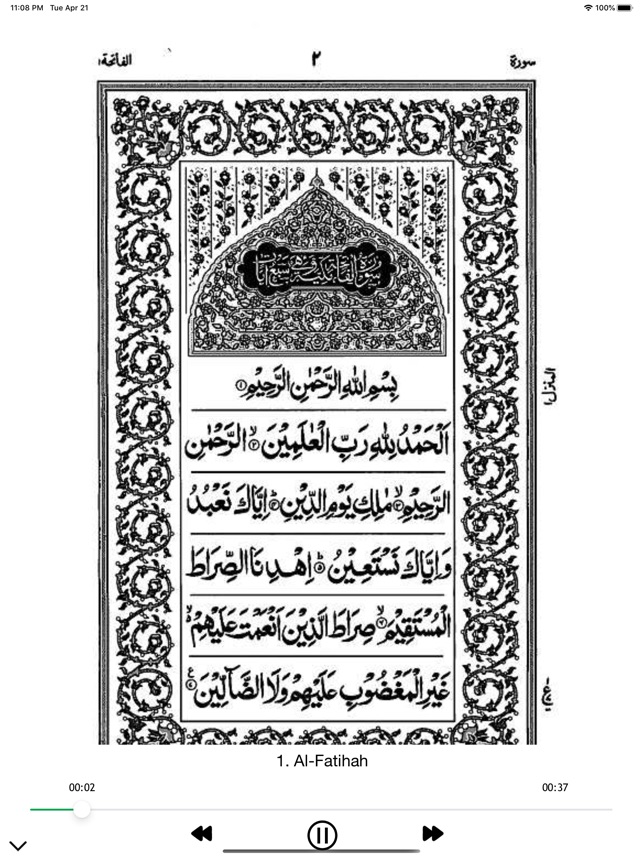 11:08 PM Tue Apr 21 100%
سورة ٢ الفاتحة
بِسْمِ اللهِ الرَّحْمٰنِ الرَّحِيْمِ ۝١
اَلْحَمْدُ لِلّٰهِ رَبِّ الْعٰلَمِيْنَ ۙ۝٢ الرَّحْمٰنِ
الرَّحِيْمِ ۙ۝٣ مٰلِكِ يَوْمِ الدِّيْنِ ؕ۝٤ اِيَّاكَ نَعْبُدُ
وَاِيَّاكَ نَسْتَعِيْنُ ؕ۝٥ اِهْدِنَا الصِّرَاطَ
الْمُسْتَقِيْمَ ۙ۝٦ صِرَاطَ الَّذِيْنَ اَنْعَمْتَ عَلَيْهِمْ ۙ
غَيْرِ الْمَغْضُوْبِ عَلَيْهِمْ وَلَا الضَّآلِّيْنَ ۝٧
المنزل ١
1. Al-Fatihah
00:02 00:37